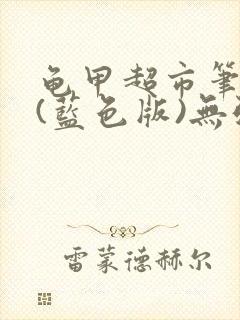 龟甲超市筆
(藍色版)無
雷蒙德赫尔